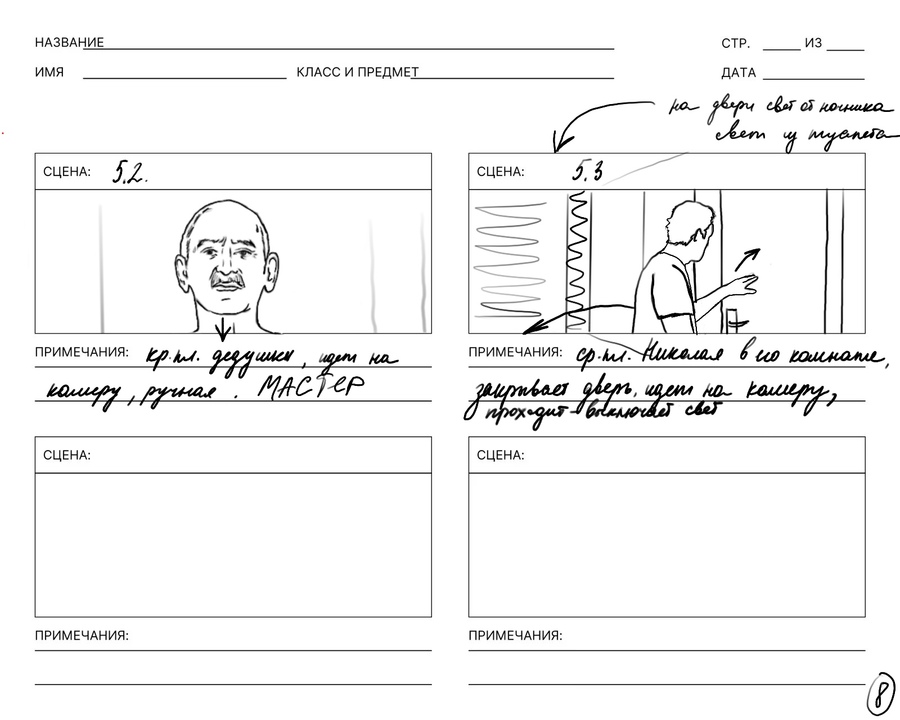 НАЗВАНИЕ
СТР. ИЗ
ИМЯ КЛАСС И ПРЕДМЕТ
ДАТА
на двери свет от ночника
свет из туалета
СЦЕНА: 5.2.
СЦЕНА: 5.3
ПРИМЕЧАНИЯ: кр.пл. дедушки, идет на
камеру, ручная. МАСТЕР
ПРИМЕЧАНИЯ: ср.пл. Николая в его комнате,
закрывает дверь, идет на камеру,
проходит - выключает свет
СЦЕНА:
СЦЕНА:
ПРИМЕЧАНИЯ:
ПРИМЕЧАНИЯ:
8